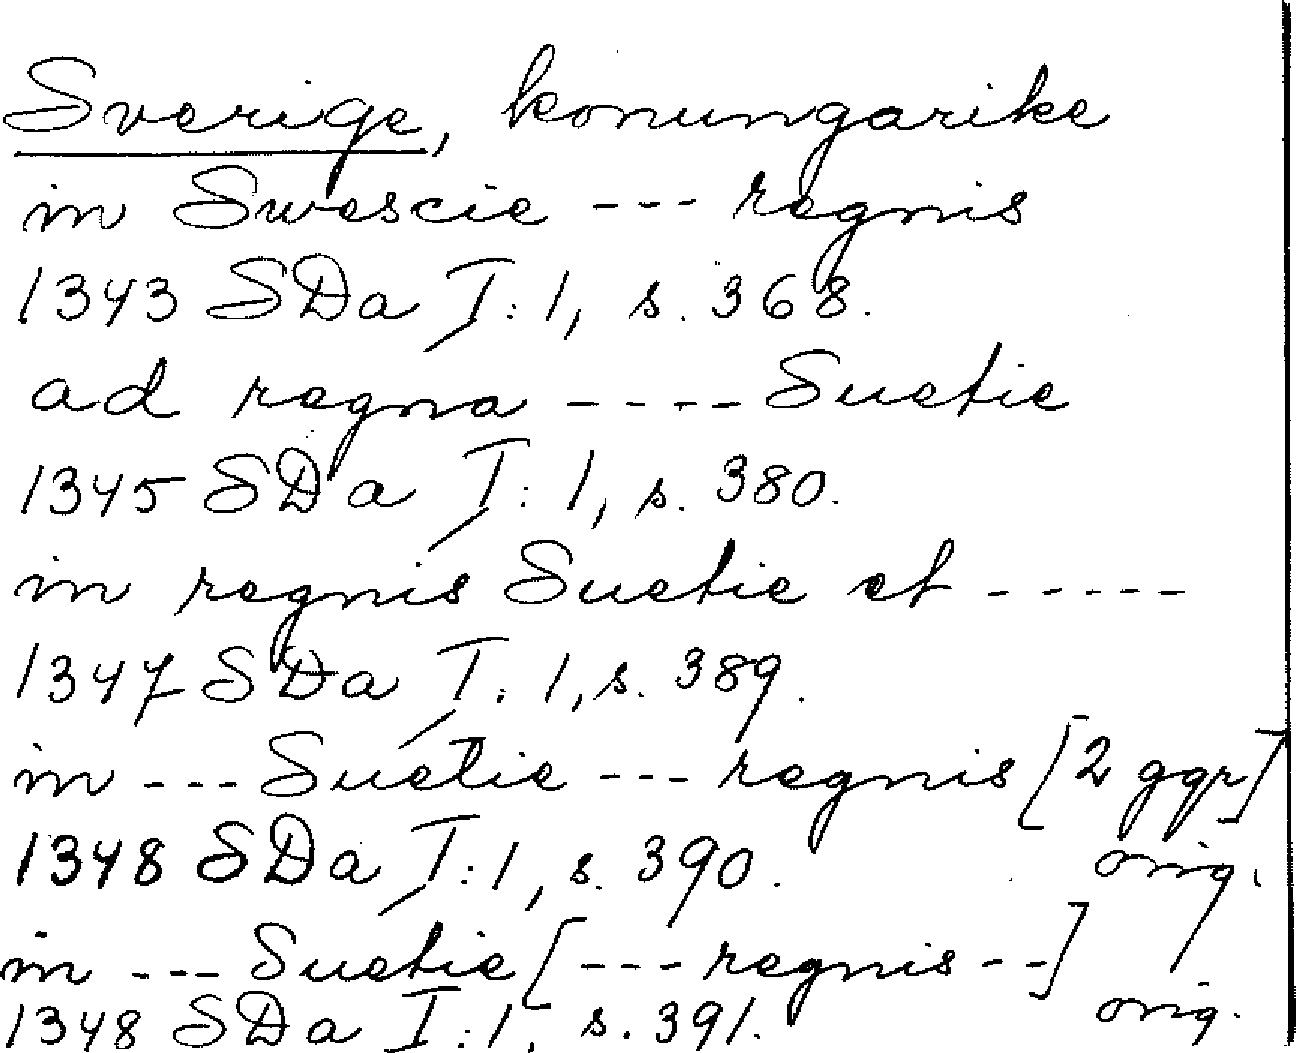 Sverige, konungarike
in Swescie --- regnis
1343 SDa I:1, s. 368.
ad regna ---- Suetie
1345 SDa I:1, s. 380.
in regnis Suetie et -----
1347 SDa I:1, s. 389.
in --- Suetie --- regnis [2 ggr]
1348 SDa I:1, s. 390. orig.
in --- Suetie [--- regnis --]
1348 SDa I:1, s. 391. orig.